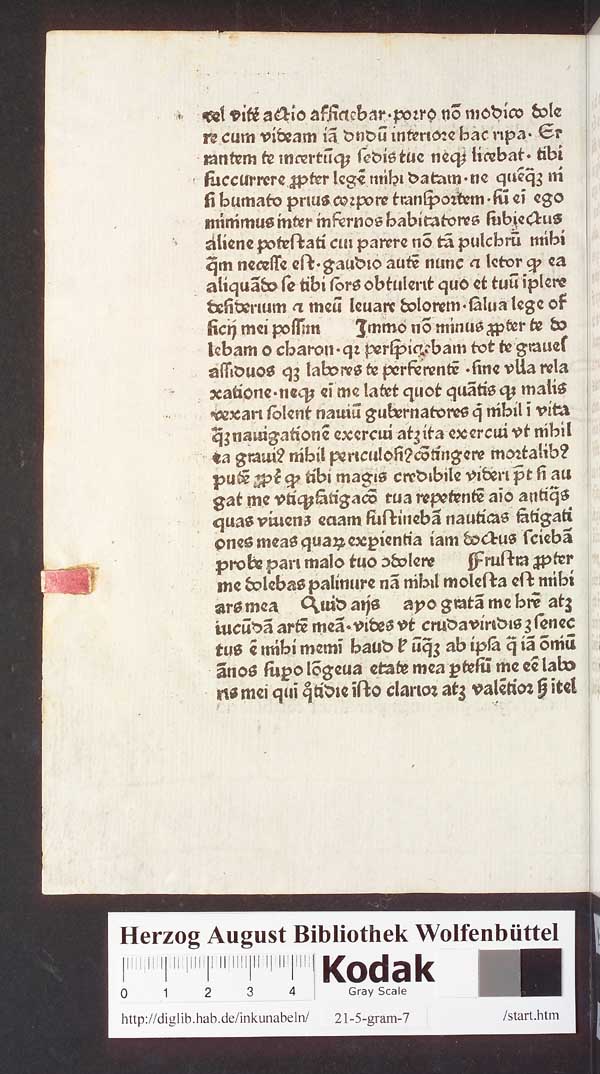 vel vite᷑ actio afficiebar·porro nō modico dole
re cum videam iā dndū interiore hac ripa· Er
rantem te incertūqȝ sedis tue neqȝ licebat· tibi
succurrere ꝓpter legē mihi datam·ne quēqȝ ni
si humato prius corpore transportem·sū eī ego
minimus inter infernos habitatores subiectus
aliene potestati cui parere nō tā pulchrū mihi
q̄m necesse est·gaudio autē nunc ⁊ letor ꝙ ea
aliquādo se tibi sors obtulerit quo et tuū īplere
desiderium ⁊ meū leuare dolorem·salua lege of
ficij mei possim Immo nō minus ꝓpter te do
lebam o charon·qꝛ perspiciebam tot te graues
assiduos qȝ labores te perferentē·sine vlla rela
xatione·neqȝ eī me latet quot quātis qȝ malis
vexari solent nauiū gubernatores q̄ nihil ī vita
q̄ȝ nauigationē exercui atȝ ita exercui vt nihil
ea graui⁹ nihil periculosi⁹ cōtingere mortalib⁹
putē ꝓpt᷑ ꝙ tibi magis credibile videri p̄t si au
gat me vtiqȝ fatigacō tua repetentē aīo antiq̄s
quas viuens eciam sustinebā nauticas fatigati
ones meas quaꝝ experientia iam doctus sciebā
probe pari malo tuo ꝯdolere Frustra ꝓpter
me dolebas palinure nā nihil molesta est mihi
ars mea Quid aijs ayo gratā me hr̄e atȝ
iucūdā artē meā·vides vt cruda viridis ȝ senec
tus ē mihi memī haud ł᷑ ūqȝ ab ipsa q̄ iā ōmū
ānos suꝑo lōgeua etate mea ꝑtesū me eē labo
ris mei quī q̊tidie īsto clarior atȝ valētior sȝ itel
Herzog August Bibliothek Wolfenbüttel
0 1 2 3 4
Kodak
Gray Scale
http://diglib.hab.de/inkunabeln/ 21-5-gram-7 /start.htm